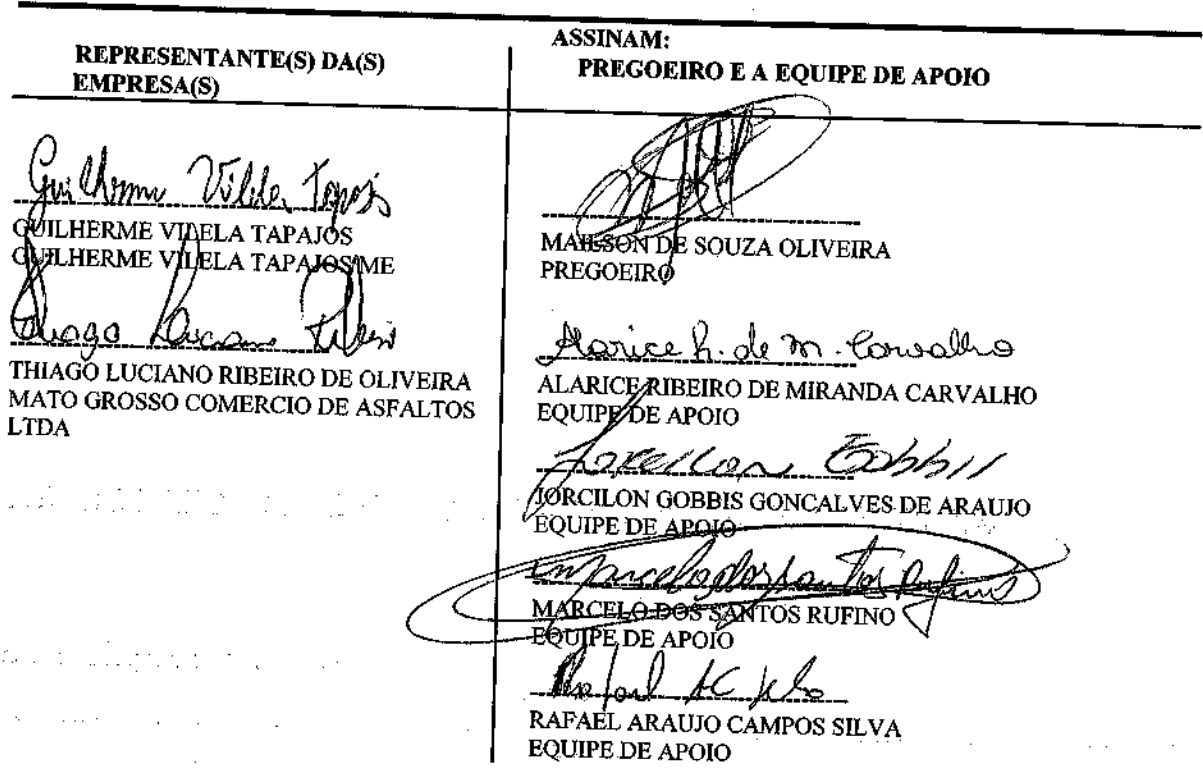 REPRESENTANTE(S) DA(S)
EMPRESA(S)
Guilherme Vilela Tapajós
GUILHERME VILELA TAPAJOS
GUILHERME VILELA TAPAJOS ME
Thiago Luciano Ribeiro
THIAGO LUCIANO RIBEIRO DE OLIVEIRA
MATO GROSSO COMERCIO DE ASFALTOS
LTDA
ASSINAM:
PREGOEIRO E A EQUIPE DE APOIO
MAILSON DE SOUZA OLIVEIRA
PREGOEIRO
Alarice R. de M. Carvalho
ALARICE RIBEIRO DE MIRANDA CARVALHO
EQUIPE DE APOIO
Jorcilon Gobbis
JORCILON GOBBIS GONCALVES DE ARAUJO
EQUIPE DE APOIO
Marcelo dos Santos Rufino
MARCELO DOS SANTOS RUFINO
EQUIPE DE APOIO
Rafael AC
RAFAEL ARAUJO CAMPOS SILVA
EQUIPE DE APOIO